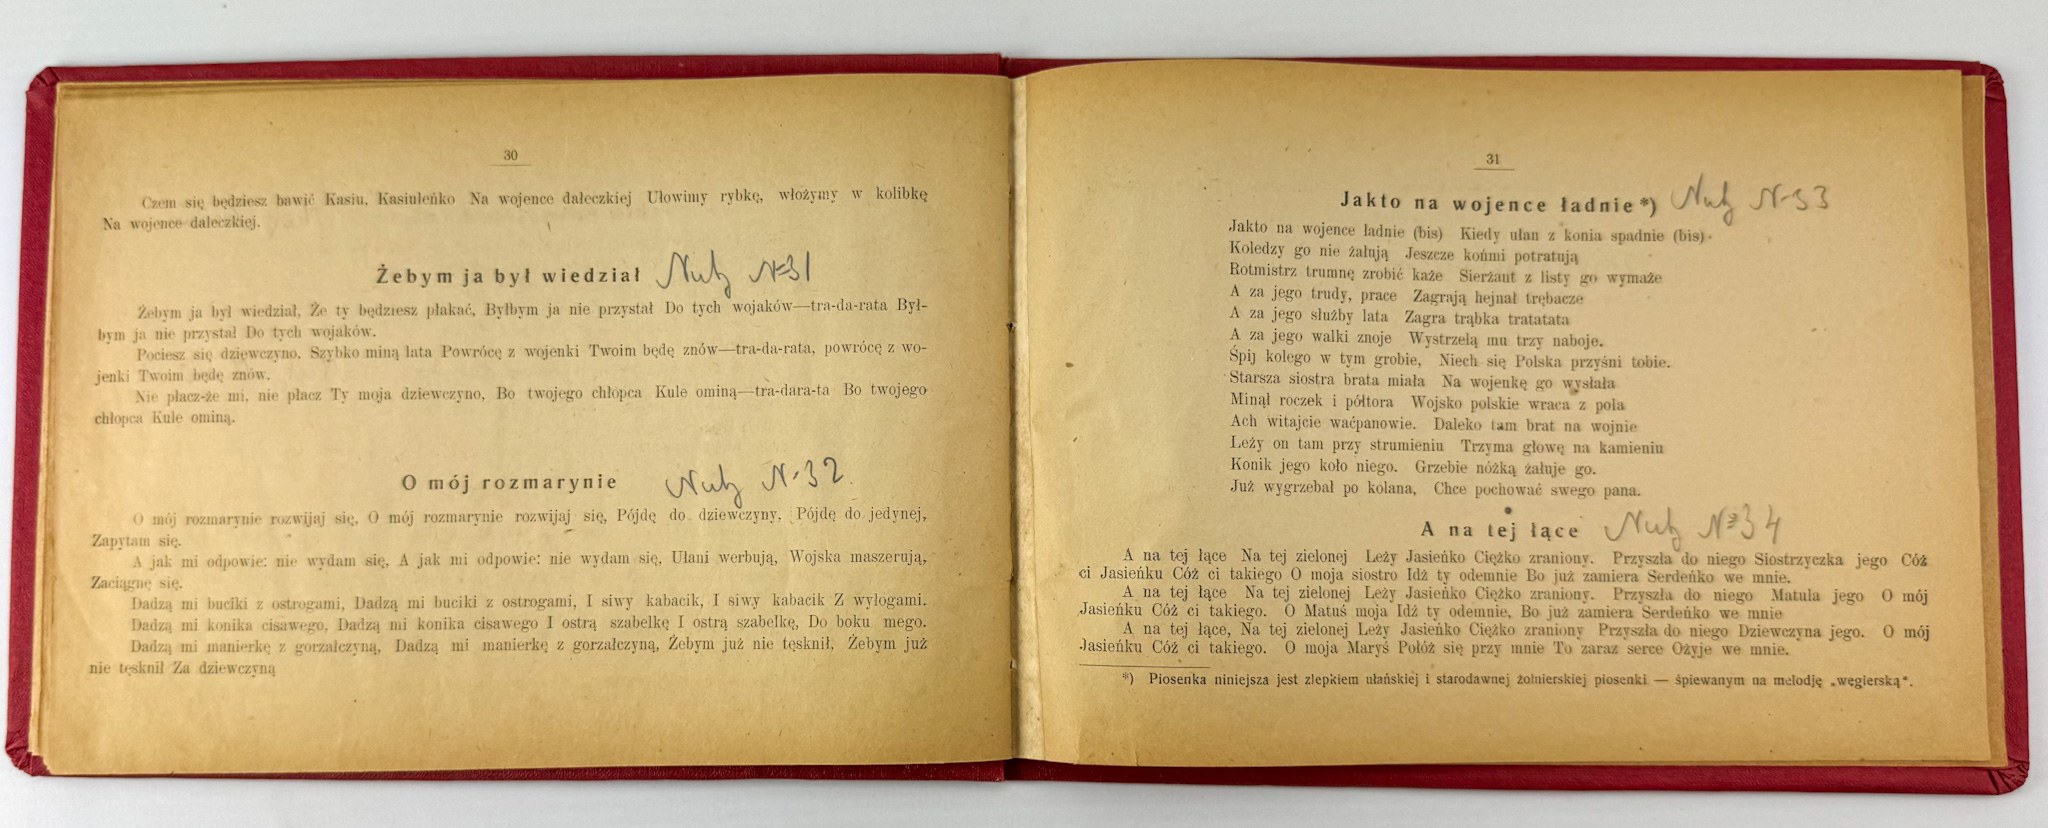 30
Czem się będziesz bawić Kasiu, Kasiuleńko Na wojence daleczkiej Ułowimy rybkę, włożymy w kolibkę
Na wojence daleczkiej.
Żebym ja był wiedział Nuty №31
Żebym ja był wiedział, Że ty będziesz płakać, Byłbym ja nie przystał Do tych wojaków—tra-da-rata Był-
bym ja nie przystał Do tych wojaków.
Pociesz się dziewczyno. Szybko miną lata Powrócę z wojenki Twoim będę znów—tra-da-rata, powrócę z wo-
jenki Twoim będę znów.
Nie płacz-że mi, nie płacz Ty moja dziewczyno, Bo twojego chłopca Kule ominą—tra-dara-ta Bo twojego
chłopca Kule ominą.
O mój rozmarynie Nuty N-32
O mój rozmarynie rozwijaj się, O mój rozmarynie rozwijaj się, Pójdę do dziewczyny, Pójdę do jedynej,
Zapytam się.
A jak mi odpowie: nie wydam się, A jak mi odpowie: nie wydam się, Ułani werbują, Wojska maszerują,
Zaciągnę się.
Dadzą mi buciki z ostrogami, Dadzą mi buciki z ostrogami, I siwy kabacik, I siwy kabacik Z wyłogami.
Dadzą mi konika cisawego, Dadzą mi konika cisawego I ostrą szabelkę I ostrą szabelkę, Do boku mego.
Dadzą mi manierkę z gorzałczyną, Dadzą mi manierkę z gorzałczyną, Żebym już nie tęsknił, Żebym już
nie tęsknił Za dziewczyną
31
Jakto na wojence ładnie*) Nuty N-33
Jakto na wojence ładnie (bis) Kiedy ułan z konia spadnie (bis)
Koledzy go nie żałują Jeszcze końmi potratują
Rotmistrz trumnę zrobić każe Sierżant z listy go wymaże
A za jego trudy, prace Zagrają hejnał trębacze
A za jego służby lata Zagra trąbka tratatata
A za jego walki znoje Wystrzelą mu trzy naboje.
Śpij kolego w tym grobie, Niech się Polska przyśni tobie.
Starsza siostra brata miała Na wojenkę go wysłała
Minął roczek i półtora Wojsko polskie wraca z pola
Ach witajcie waćpanowie. Daleko tam brat na wojnie
Leży on tam przy strumieniu Trzyma głowę na kamieniu
Konik jego koło niego. Grzebie nóżką żałuje go.
Już wygrzebał po kolana, Chce pochować swego pana.
A na tej łące Nuty №34
A na tej łące Na tej zielonej Leży Jasieńko Ciężko zraniony. Przyszła do niego Siostrzyczka jego Cóż
ci Jasieńku Cóż ci takiego O moja siostro Idź ty odemnie Bo już zamiera Serdeńko we mnie.
A na tej łące Na tej zielonej Leży Jasieńko Ciężko zraniony. Przyszła do niego Matula jego O mój
Jasieńku Cóż ci takiego. O Matuś moja Idź ty odemnie, Bo już zamiera Serdeńko we mnie
A na tej łące, Na tej zielonej Leży Jasieńko Ciężko zraniony Przyszła do niego Dziewczyna jego. O mój
Jasieńku Cóż ci takiego. O moja Maryś Połóż się przy mnie To zaraz serce Ożyje we mnie.
*) Piosenka niniejsza jest zlepkiem ułańskiej i starodawnej żołnierskiej piosenki — śpiewanym na melodję „węgierską".